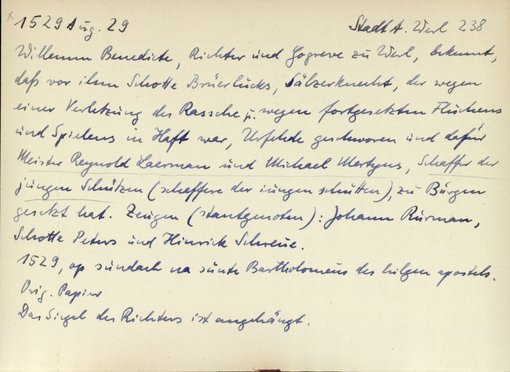 1529 Aug. 29 Stadt A. Werl 238
Willemm Benedicte, Richter und Gogreve zu Werl, bekennt,
daß vor ihm Schotte Brüerlücks, Sälzerknecht, der wegen
einer Verletzung des Rassche u. wegen fortgesetzten Fluchens
und Spielens in Haft war, Urfehde geschworen und dafür
Meister Reynold Laerman und Michael Mertyns, Schaffer der
jungen Schützen (schaffere der iungen schutten), zu Bürgen
gesetzt hat. Zeugen (stantgenoten): Johann Rurman,
Schotte Peters und Hinrick Schreue.
1529, op sundach na sunte Bartholomeus des hilgen apostels.
Orig. Papier
Das Siegel des Richters ist angehängt.